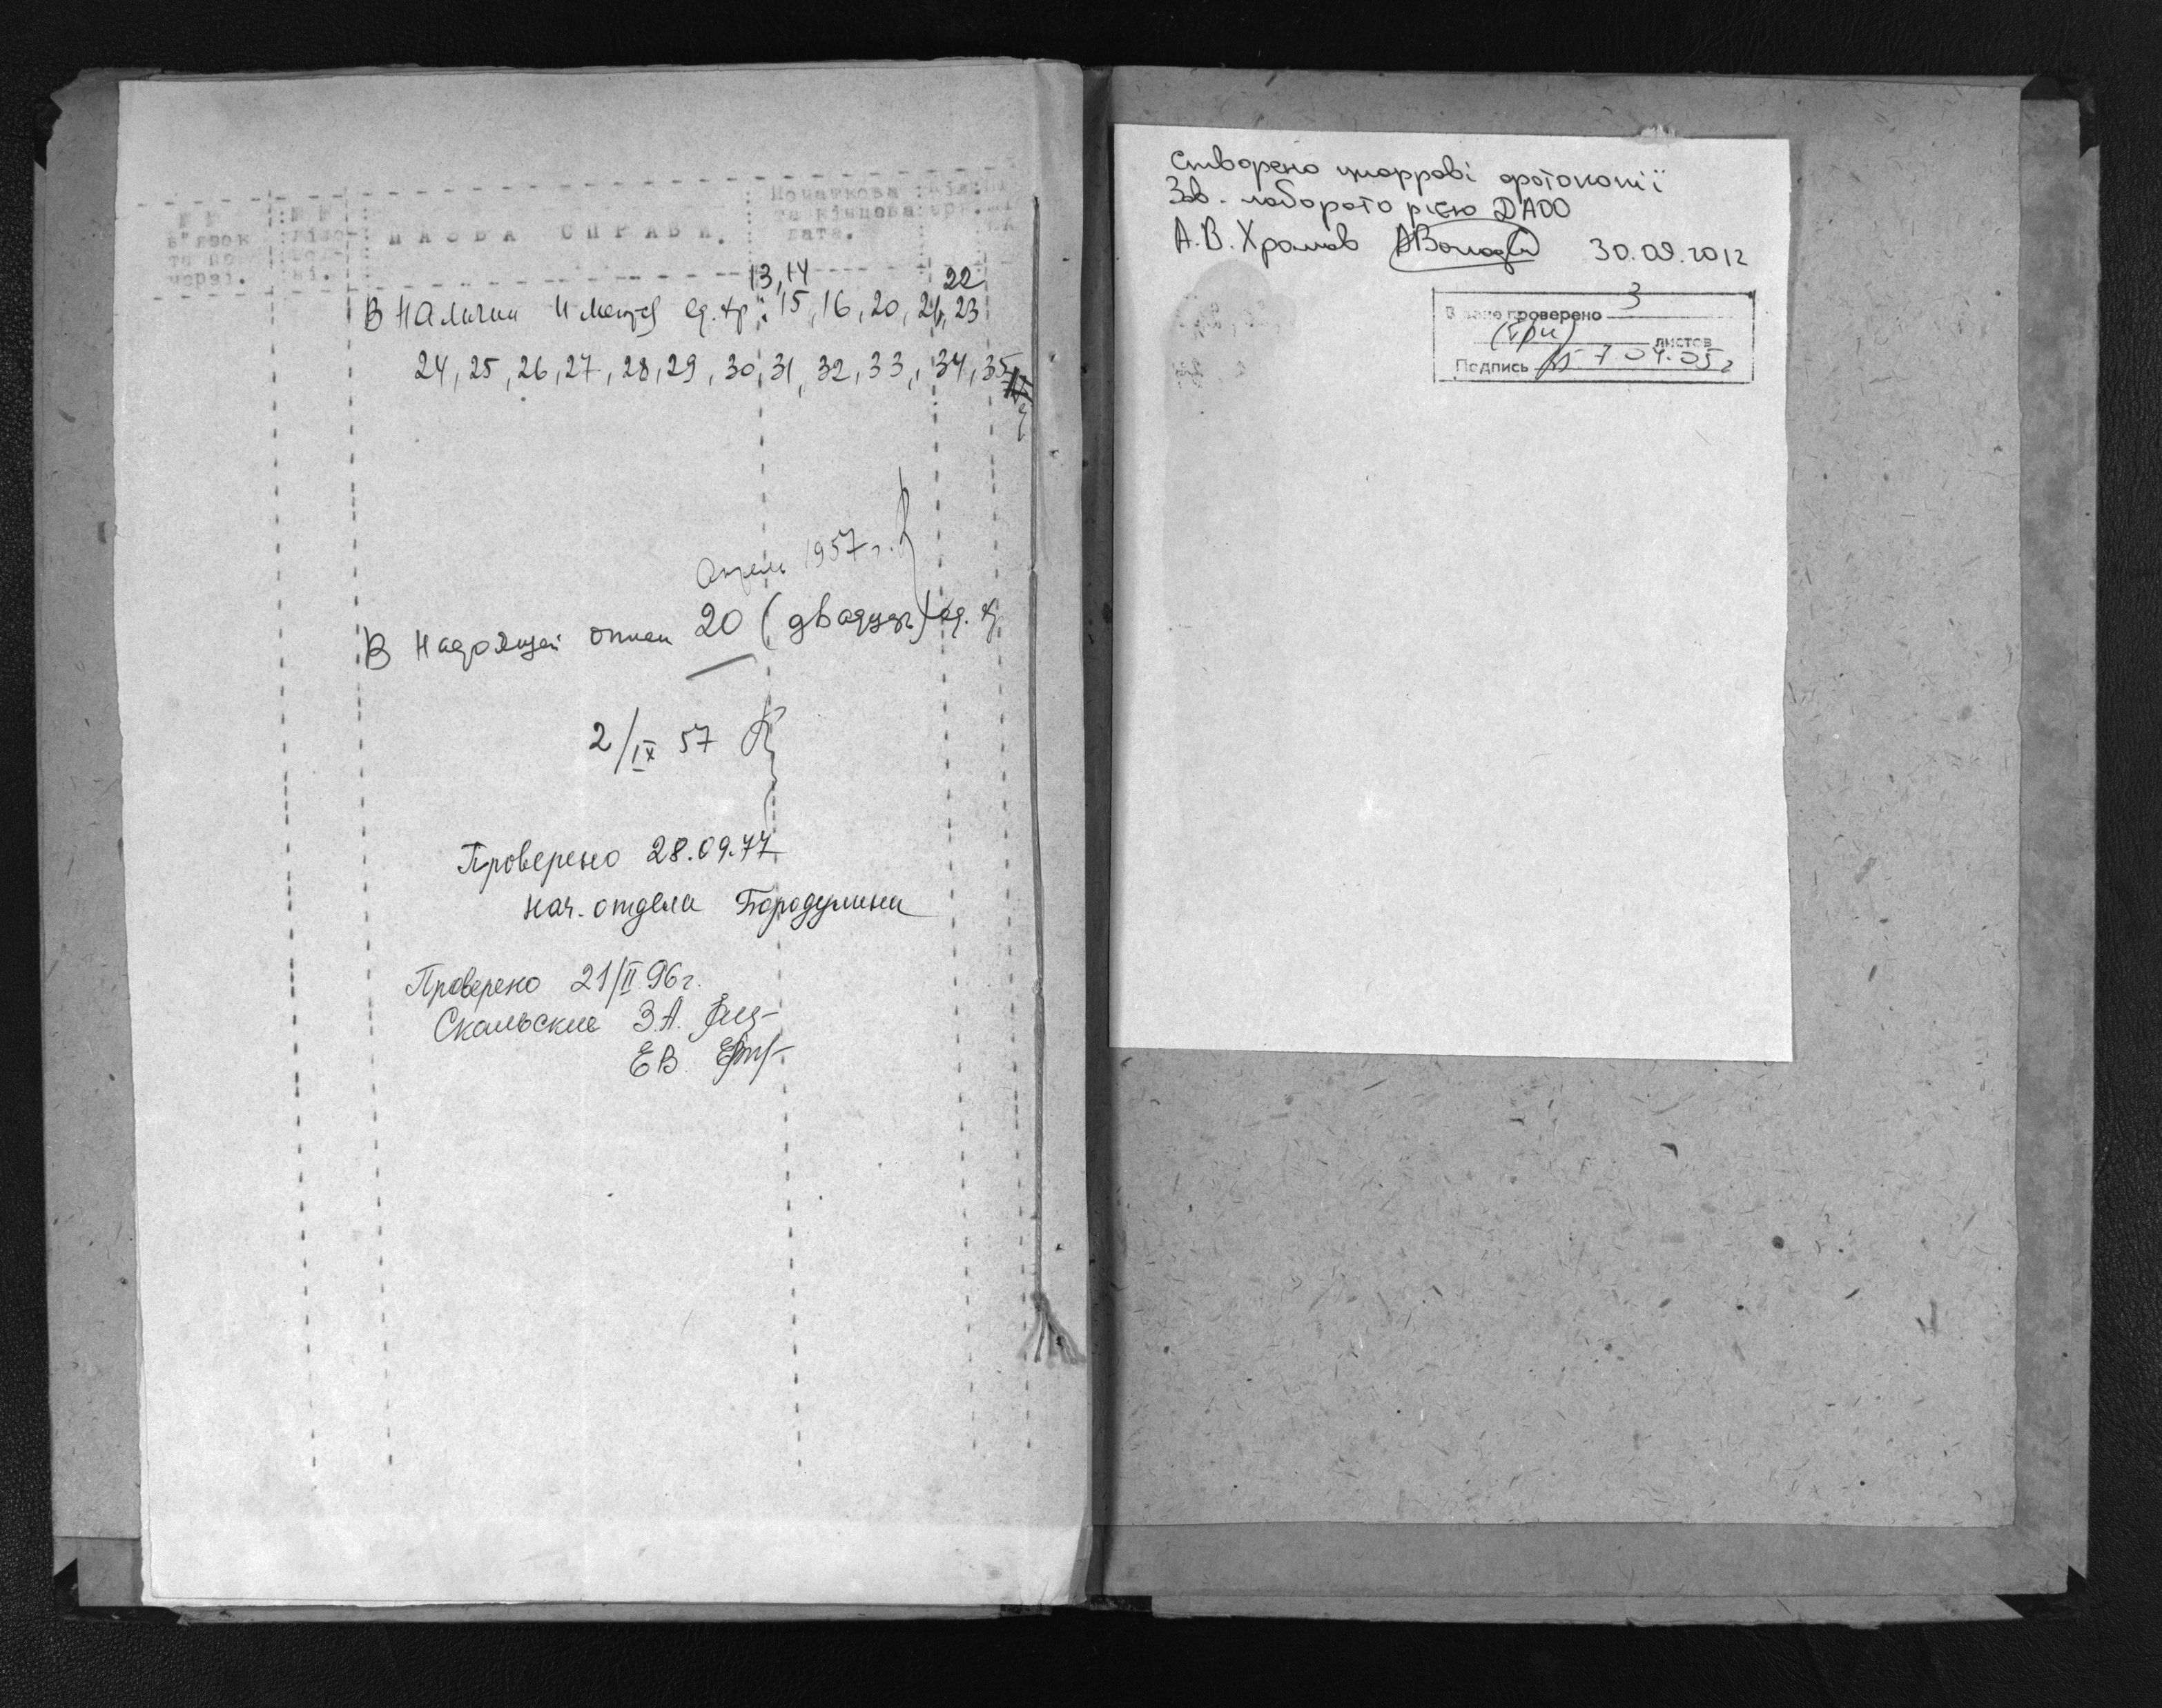 №№ №№ Початкова Кіл.
в"язок НАЗВА СПРАВИ. та кінцева арк.
та по дата.
черзі.
13, 14 22
В наличии имеется ед. хр: 15, 16, 20, 21, 23
24, 25, 26, 27, 28, 29, 30, 31, 32, 33, 34, 35
Апрель 1957 г.
В настоящей описи 20 (двадцать) ед. хр.
2/IX 57
Проверено 28.09.77
нач. отдела Бородулина
Проверено 21/II 96 г.
Скальские З.А.
Е В
Створено цифрові фотокопії
Зав. лабораторією ДАОО
А.В. Хромов 30.09.2012
В деле проверено 3
(три) листов
Подпись 04.05 г